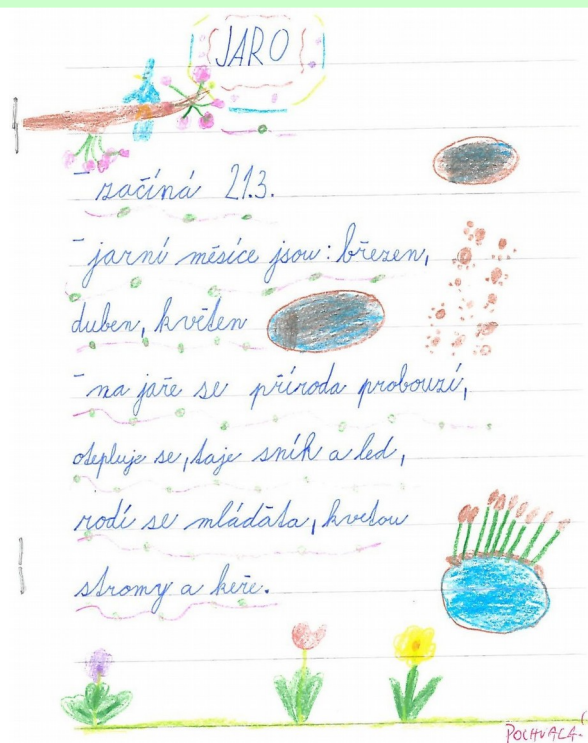 JARO
- začíná 21.3.
- jarní měsíce jsou: březen,
duben, květen
- na jaře se příroda probouzí,
otepluje se, taje sníh a led,
rodí se mláďáta, kvetou
stromy a keře.
POCHVALA.